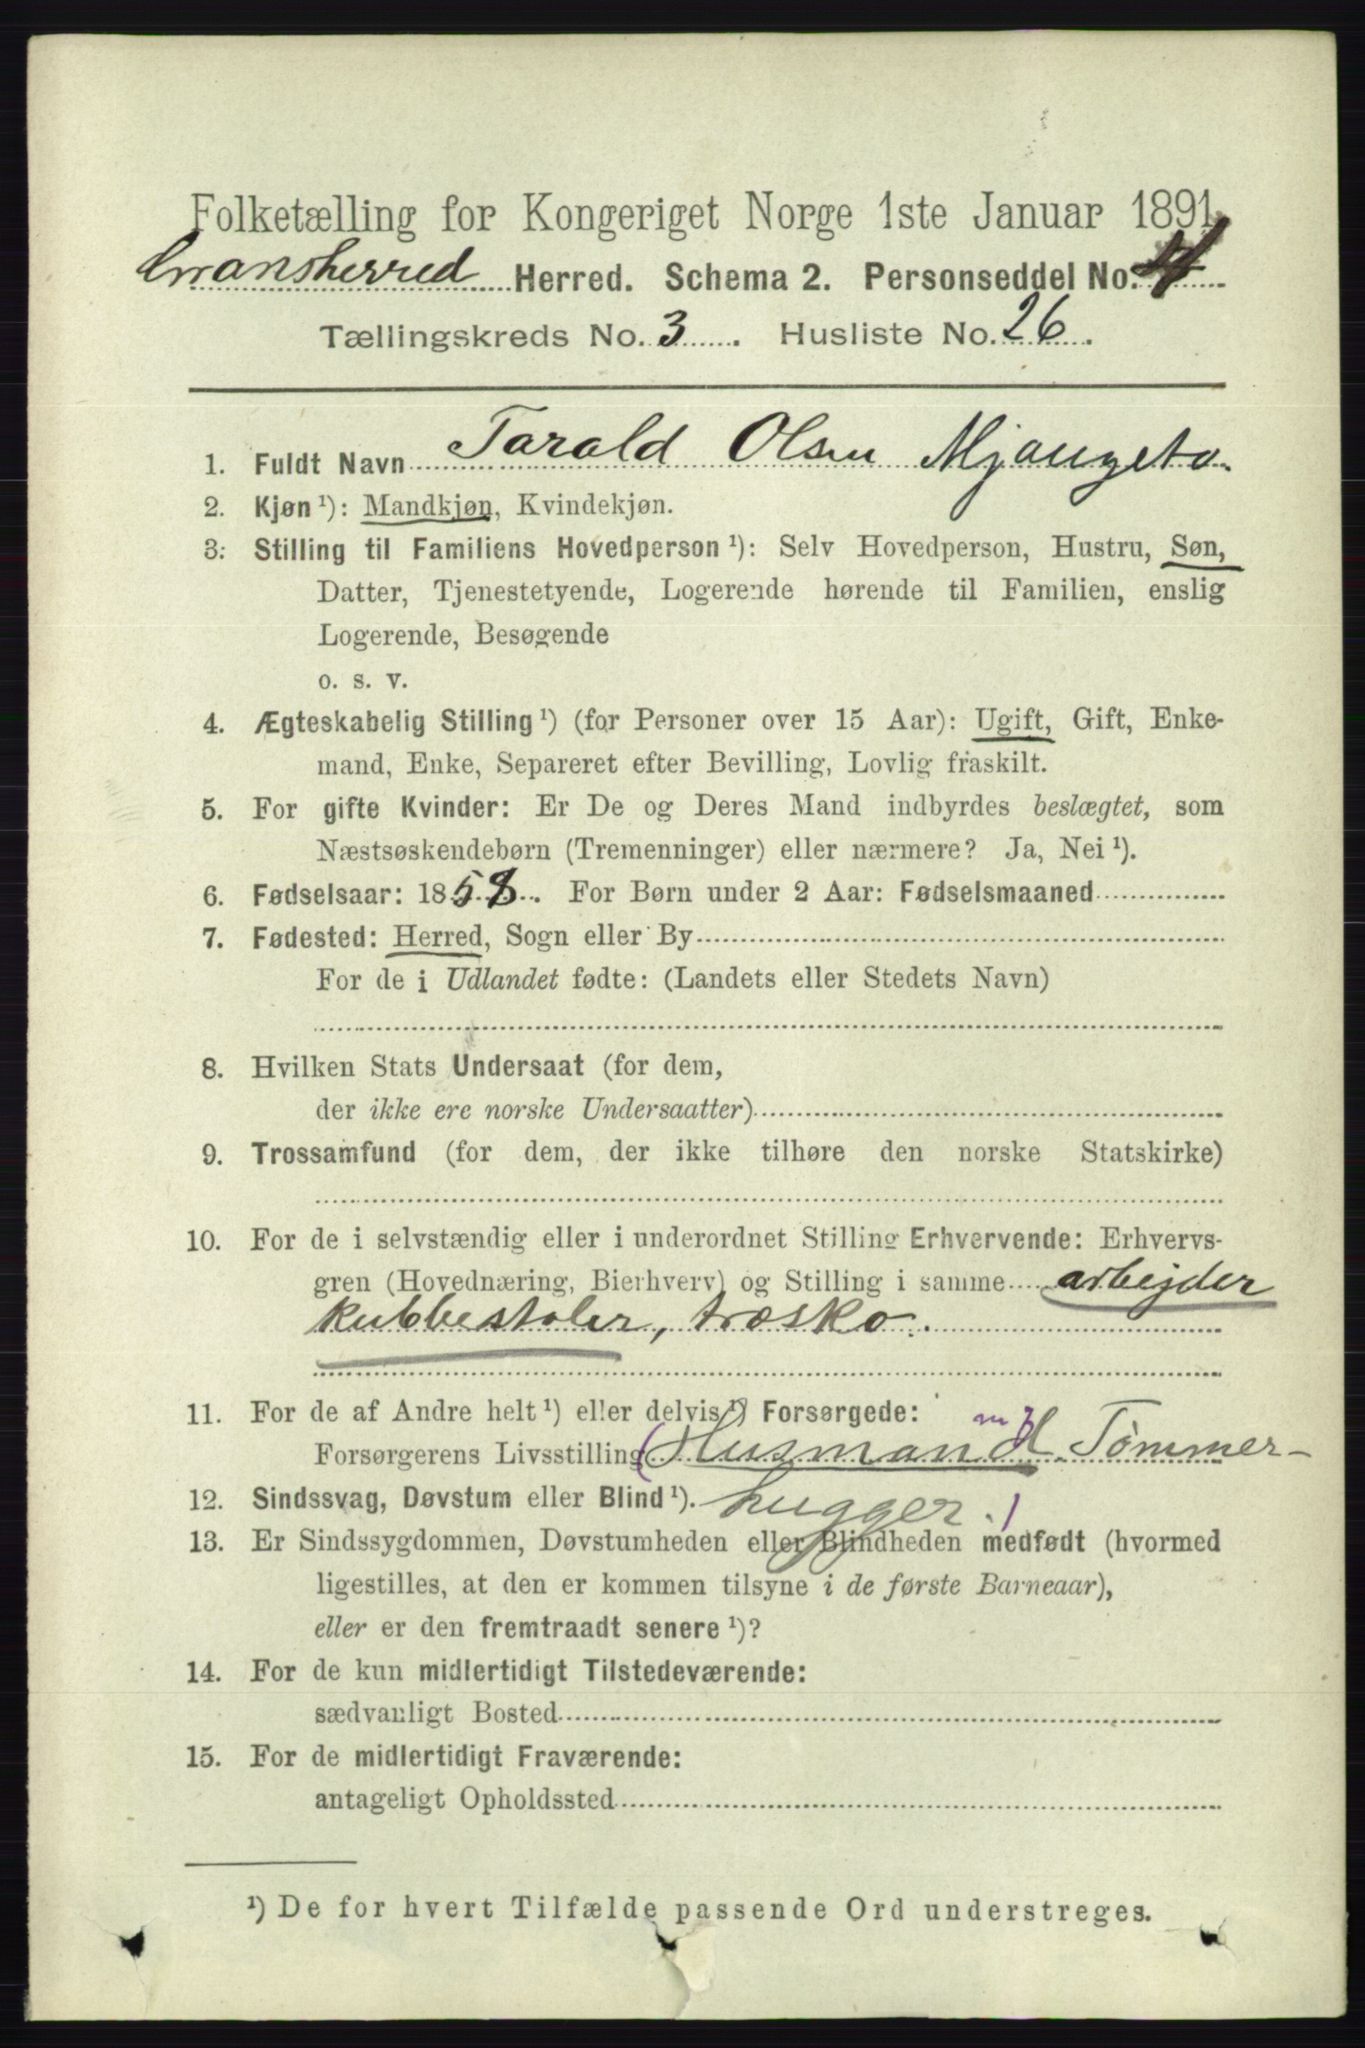 Folketælling for Kongeriget Norge 1ste Januar 1891.
Gransherred Herred. Schema 2. Personseddel No. 4
Tællingskreds No. 3. Husliste No. 26.
1. Fuldt Navn Tarald Olsen
2. Kjøn ¹): Mandkjøn, Kvindekjøn.
3. Stilling til Familiens Hovedperson ¹): Selv Hovedperson, Hustru, Søn,
Datter, Tjenestetyende, Logerende hørende til Familien, enslig
Logerende, Besøgende
o. s. v.
4. Ægteskabelig Stilling ¹) (for Personer over 15 Aar): Ugift, Gift, Enke-
mand, Enke, Separeret efter Bevilling, Lovlig fraskilt.
5. For gifte Kvinder: Er De og Deres Mand indbyrdes beslægtet, som
Næstsøskendebørn (Tremenninger) eller nærmere? Ja, Nei ¹).
6. Fødselsaar: 1858. For Børn under 2 Aar: Fødselsmaaned
7. Fødested: Herred, Sogn eller By
For de i Udlandet fødte: (Landets eller Stedets Navn)
8. Hvilken Stats Undersaat (for dem,
der ikke ere norske Undersaatter)
9. Trossamfund (for dem, der ikke tilhøre den norske Statskirke)
10. For de i selvstændig eller i underordnet Stilling Erhvervende: Erhvervs-
gren (Hovednæring, Bierhverv) og Stilling i samme arbejder
kubbestoler, træsko.
11. For de af Andre helt ¹) eller delvis ¹) Forsørgede:
Forsørgerens Livsstilling (Husmand m J. Tømmer-
12. Sindssvag, Døvstum eller Blind ¹). hugger.)
13. Er Sindssygdommen, Døvstumheden eller Blindheden medfødt (hvormed
ligestilles, at den er kommen tilsyne i de første Barneaar),
eller er den fremtraadt senere ¹)?
14. For de kun midlertidigt Tilstedeværende:
sædvanligt Bosted
15. For de midlertidigt Fraværende:
antageligt Opholdssted
¹) De for hvert Tilfælde passende Ord understreges.